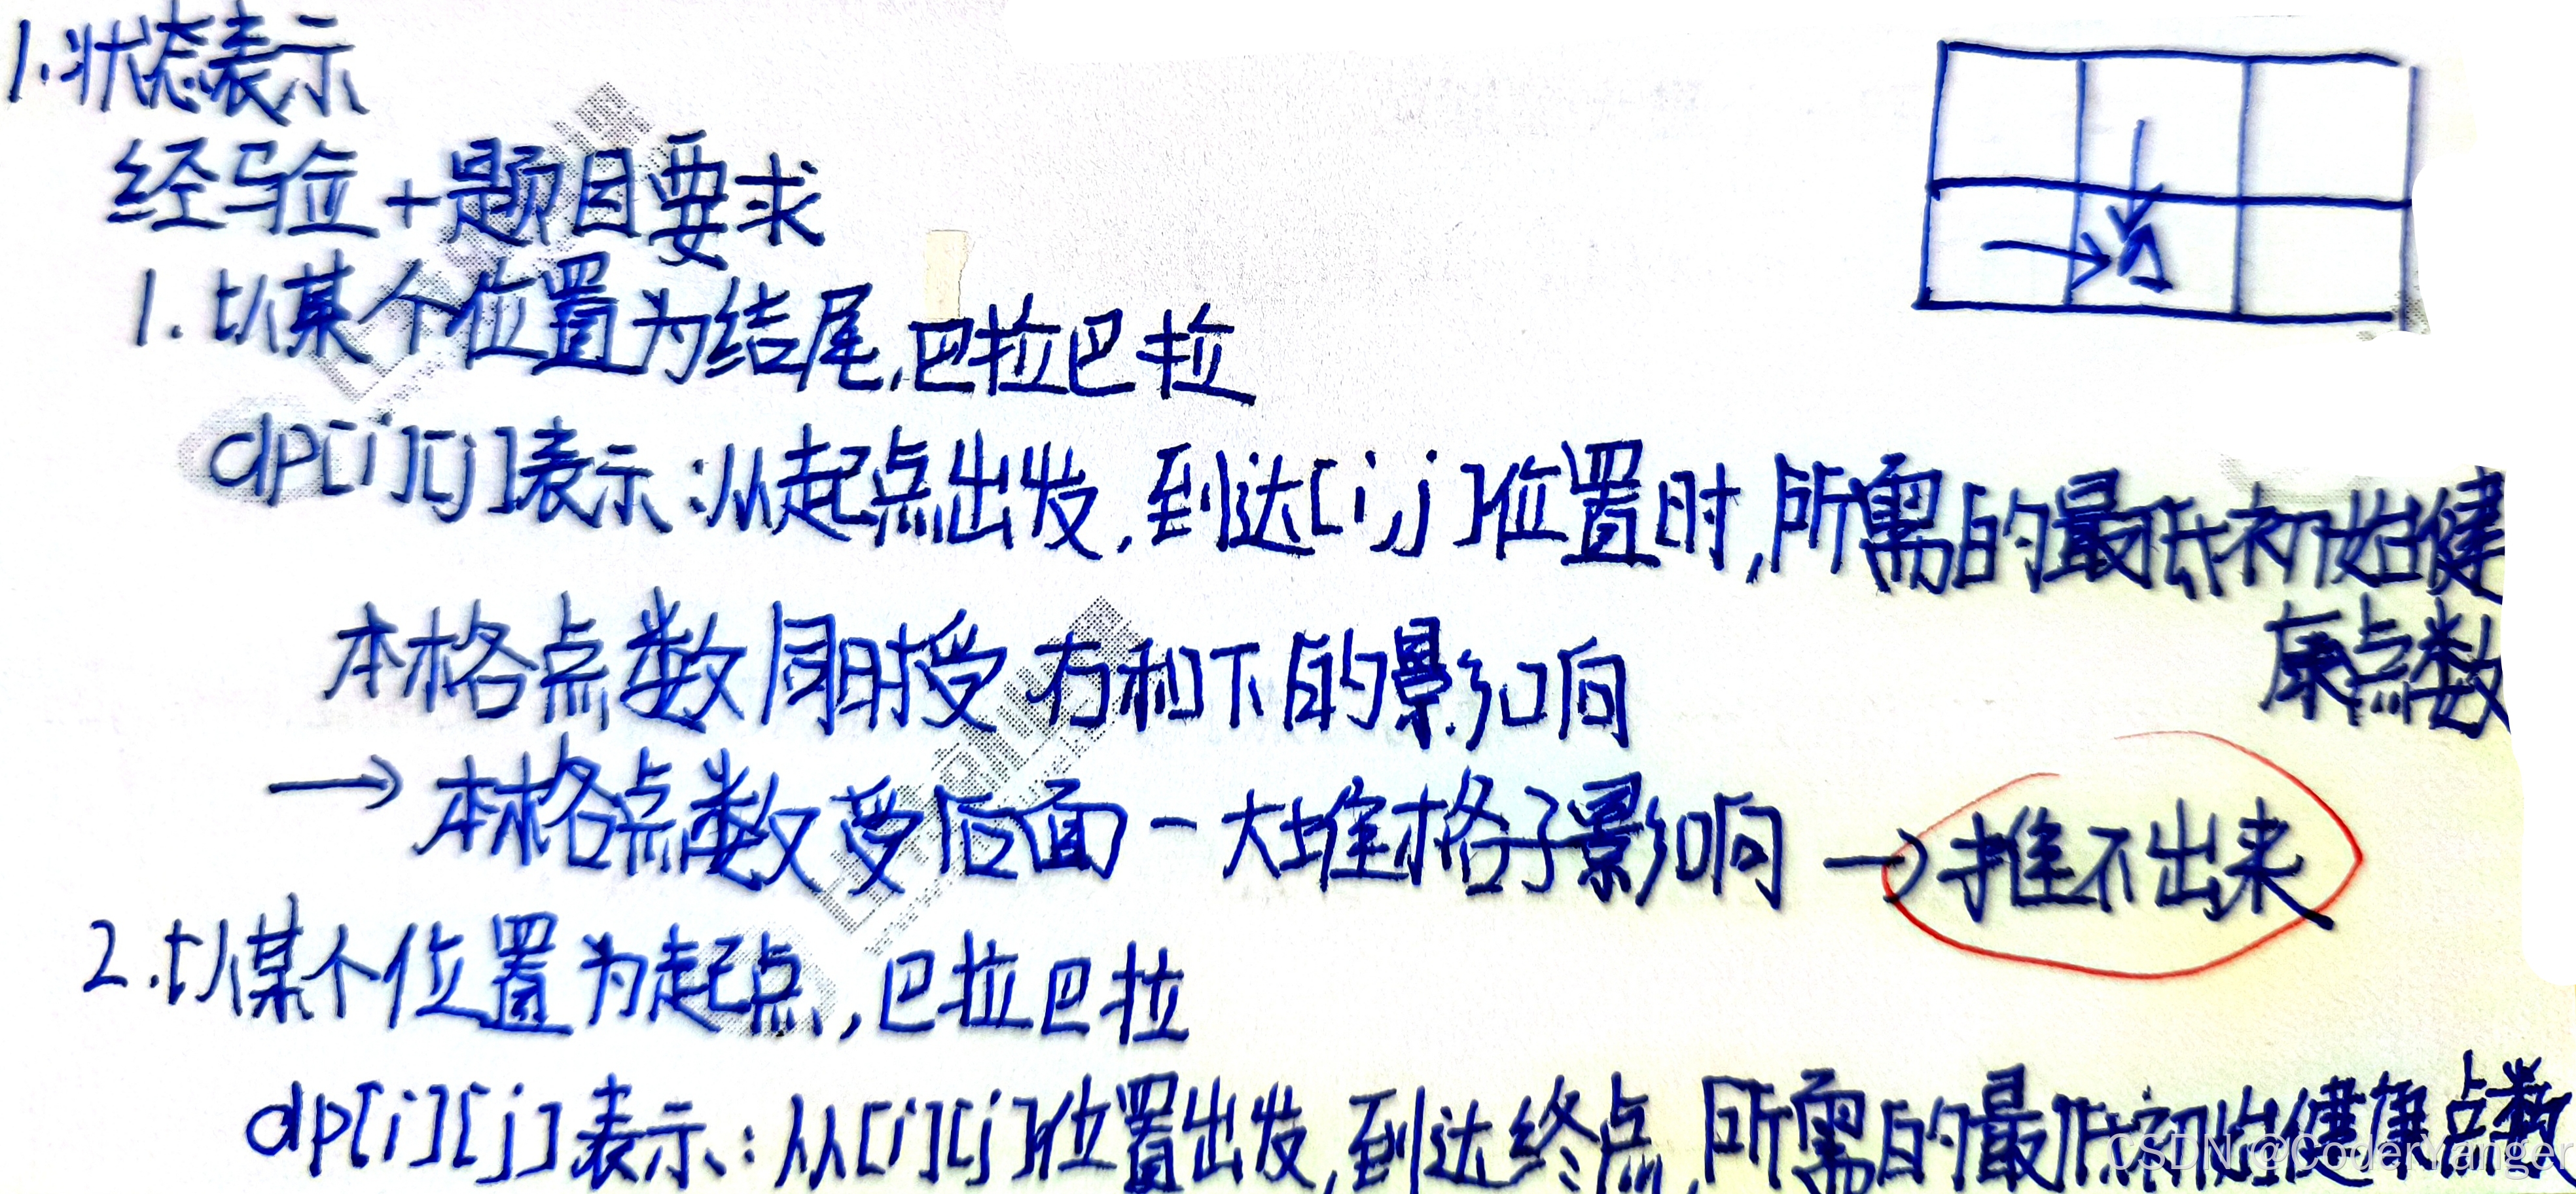 1.状态表示
经验+题目要求
1.以某个位置为结尾,巴拉巴拉
dp[i][j]表示:从起点出发,到达[i,j]位置时,所需的最低初始健
康点数
本格点数同时受右和下的影响
→本格点数受后面一大堆格子影响→推不出来
2.以某个位置为起点,巴拉巴拉
dp[i][j]表示:从[i][j]位置出发,到达终点,所需的最低初始健康点数
CSDN @CoderYanger